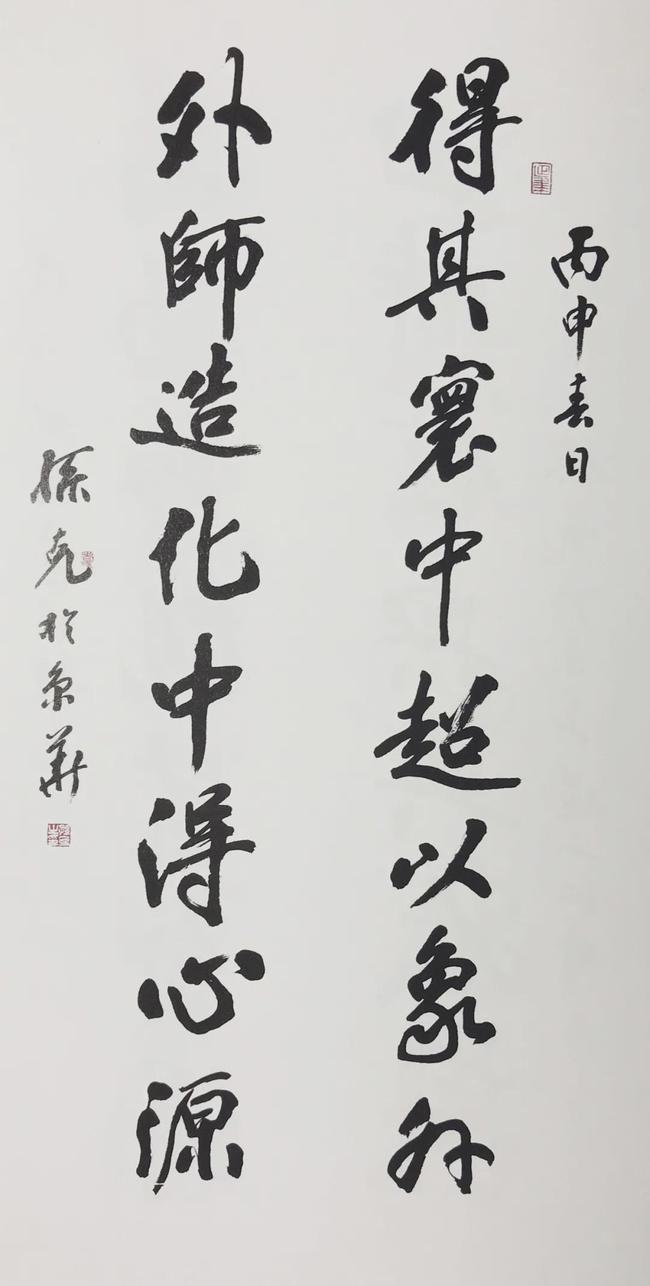 丙申春日
得其寰中超以象外
外師造化中得心源
孫克於京華